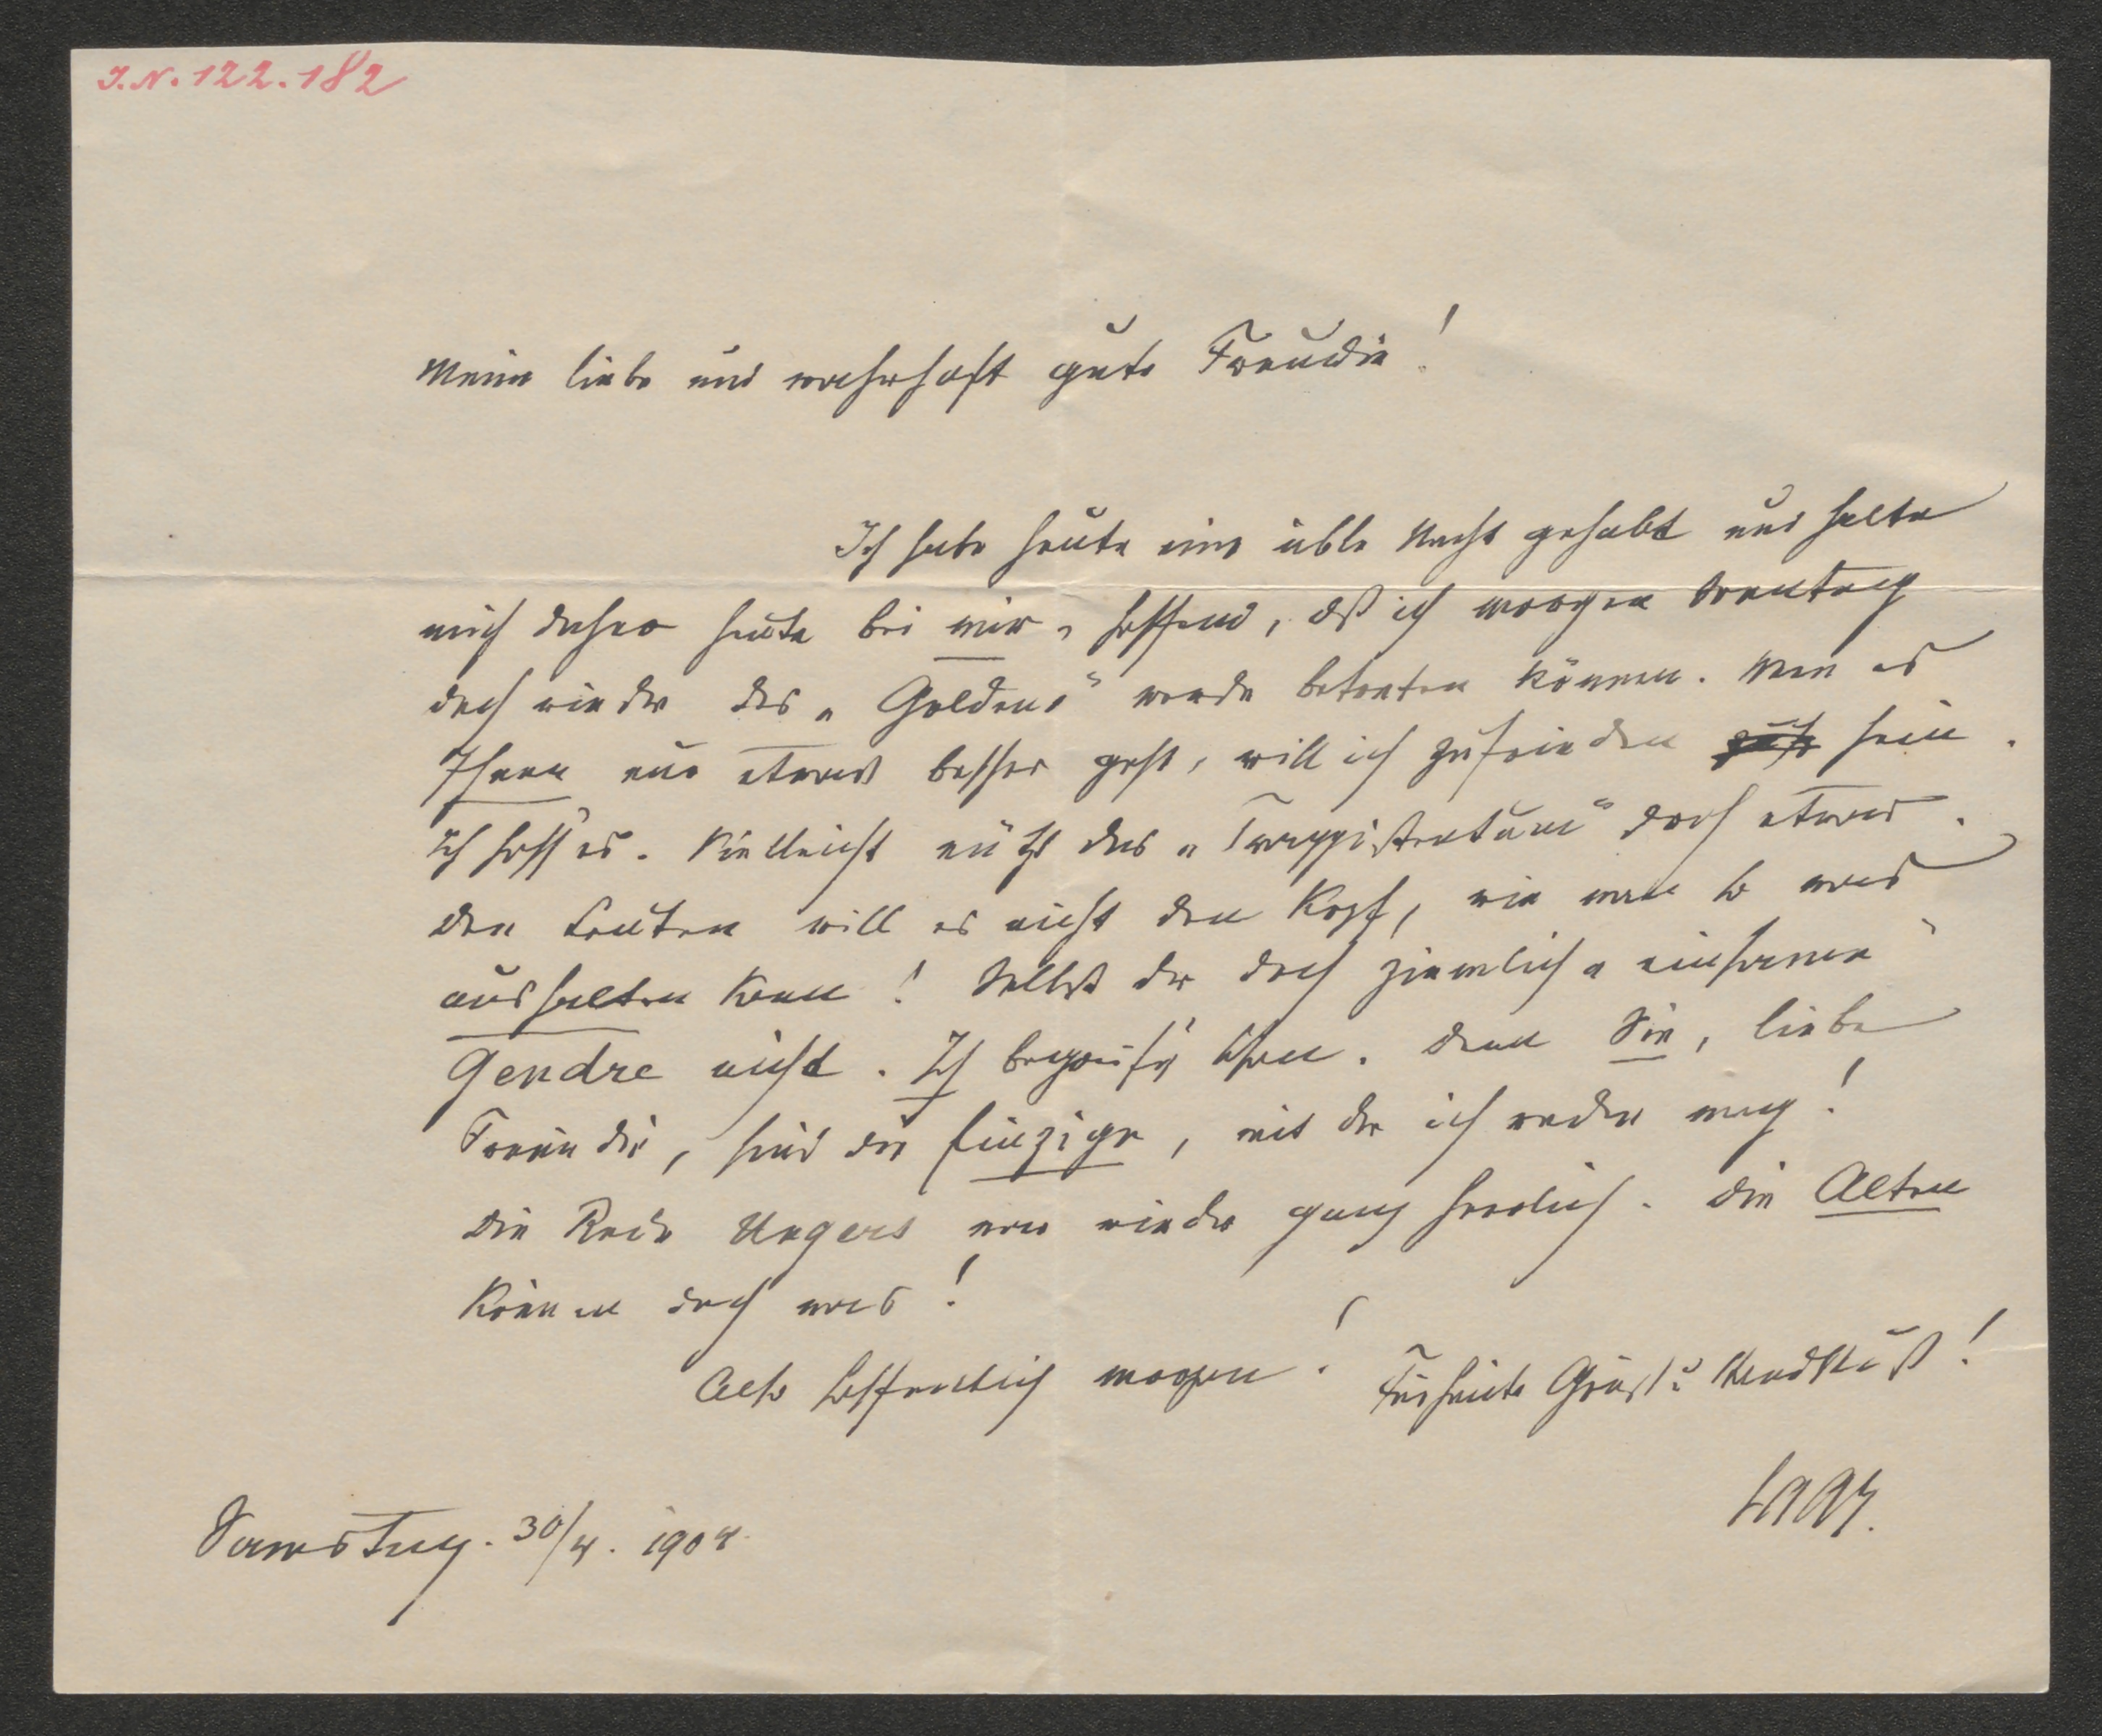 I.N. 122.182
Meine liebe und wahrhaft gute Freundin!
Ich habe heute eine üble Nacht gehabt und halte
mich daher heute bei mir, hoffend, dß ich morgen Sonntag
doch wieder das „Goldene“ werde betreten können. Wen es
Ihnen nur etwas besser geht, will ich zufrieden sein.
Ich hoff' es. Vielleicht nützt das „Trappistentum“ doch etwas.
Den Leuten will es nicht den Kopf, wie man so was
aushalten kann! Selbst der doch ziemlich „einsame“
Gendre nicht. Ich begreif's schon. Denn Sie, liebe
Freundin, sind die Einzige, mit der ich reden mag!
Die Rede Ungers war wieder ganz herrlich. Die Alten
können doch was!
Also hoffentlich morgen! Für heute Gruß u Handkuß!
Saar.
Samstag. 30/4. 1904.